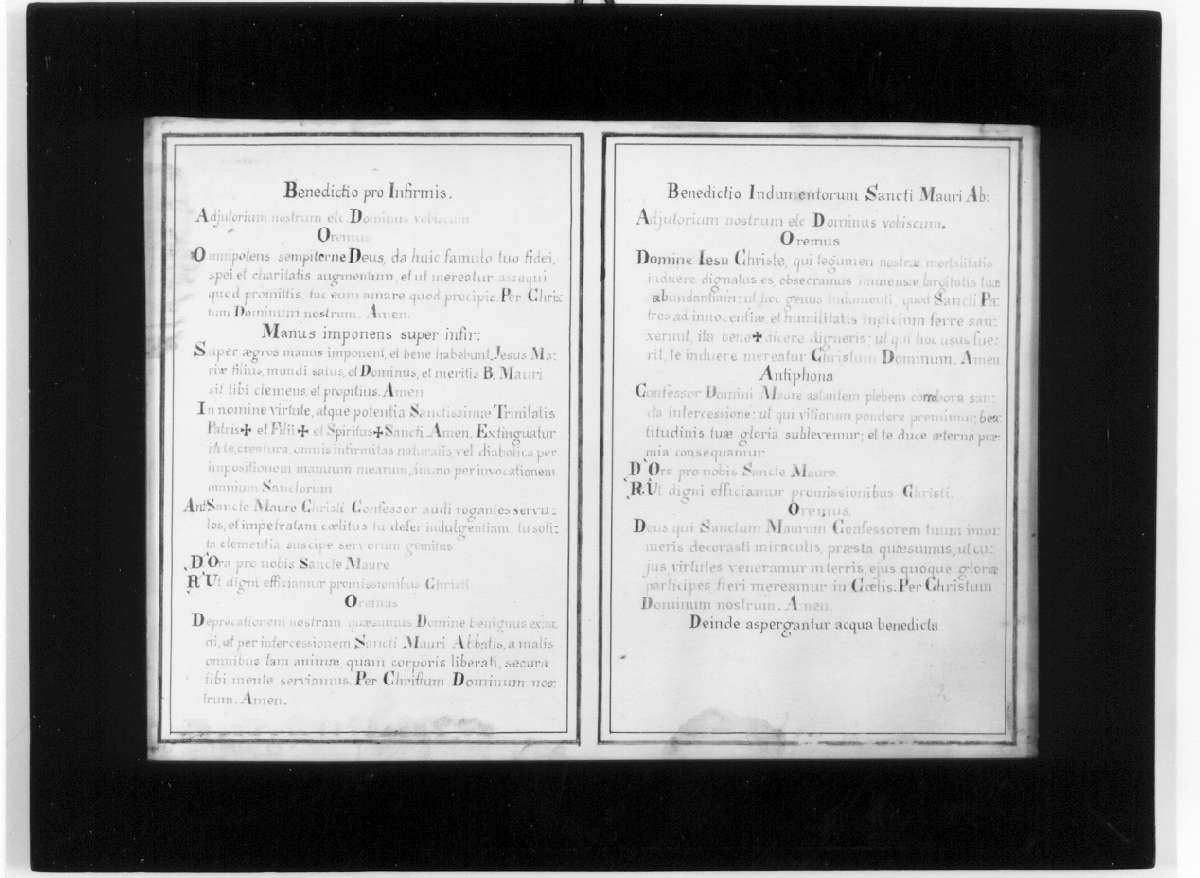 Benedictio pro Infirmis.
Adjutorium nostrum etc Dominus vobiscum
Oremus
Omnipotens sempiterne Deus, da huic famulo tuo fidei,
spei et charitatis augmentum, et ut mereatur assequi
quod promittis, fac eum amare quod precipis. Per Chris:
tum Dominum nostrum. Amen.
Manus imponens super infir:
Super ægros manus imponent, et bene habebunt, Jesus Ma:
riæ filius, mundi salus, et Dominus, et meritis B. Mauri
sit tibi clemens, et propitius. Amen
In nomine virtute, atque potentia Sanctissimæ Trinitatis
Patris ✠ et Filii ✠ et Spiritus ✠ Sancti. Amen. Extinguatur
in te, creatura, omnis infirmitas naturalis, vel diabolica, per
impositionem manuum mearum, imo per invocationem
omnium Sanctorum
Ant Sancte Maure Christi Confessor audi rogantes servu:
los, et impetratam cœlitus tu defer indulgentiam, tu soli:
ta clementia suscipe servorum gemitus
V Ora pro nobis Sancte Maure
R Ut digni efficiamur promissionibus Christi.
Oremus
Deprecationem nostram quæsumus Domine benignus exau:
di, ut per intercessionem Sancti Mauri Abbatis, a malis
omnibus tam animæ quam corporis liberati, secura
tibi mente serviamus. Per Christum Dominum nos:
trum. Amen.
Benedictio Indumentorum Sancti Mauri Ab:
Adjutorium nostrum etc Dominus vobiscum.
Oremus
Domine Iesu Christe, qui tegumen nostræ mortalitatis
induere dignatus es, obsecramus immensæ largitatis tuæ
abundantiam: ut hoc genus indumenti, quod Sancti Pa:
tres ad innocentiæ, et humilitatis indicium ferre san:
xerunt, ita bene ✠ dicere digneris; ut qui hoc usus fue:
rit, te induere mereatur Christum Dominum. Amen
Antiphona
Confessor Domini Maure astantem plebem corrobora san:
cta intercessione: ut qui vitiorum pondere premimur; bea:
titudinis tuæ gloria sublevemur; et te duce æterna præ:
mia consequamur
V Ora pro nobis Sancte Maure.
R Ut digni efficiamur promissionibus Christi.
Oremus.
Deus qui Sanctum Maurum Confessorem tuum innu:
meris decorasti miraculis, præsta quæsumus, ut cu:
jus virtutes veneramur in terris, ejus quoque gloriæ
participes fieri mereamur in Cœlis. Per Christum
Dominum nostrum. Amen.
Deinde aspergantur acqua benedicta
2